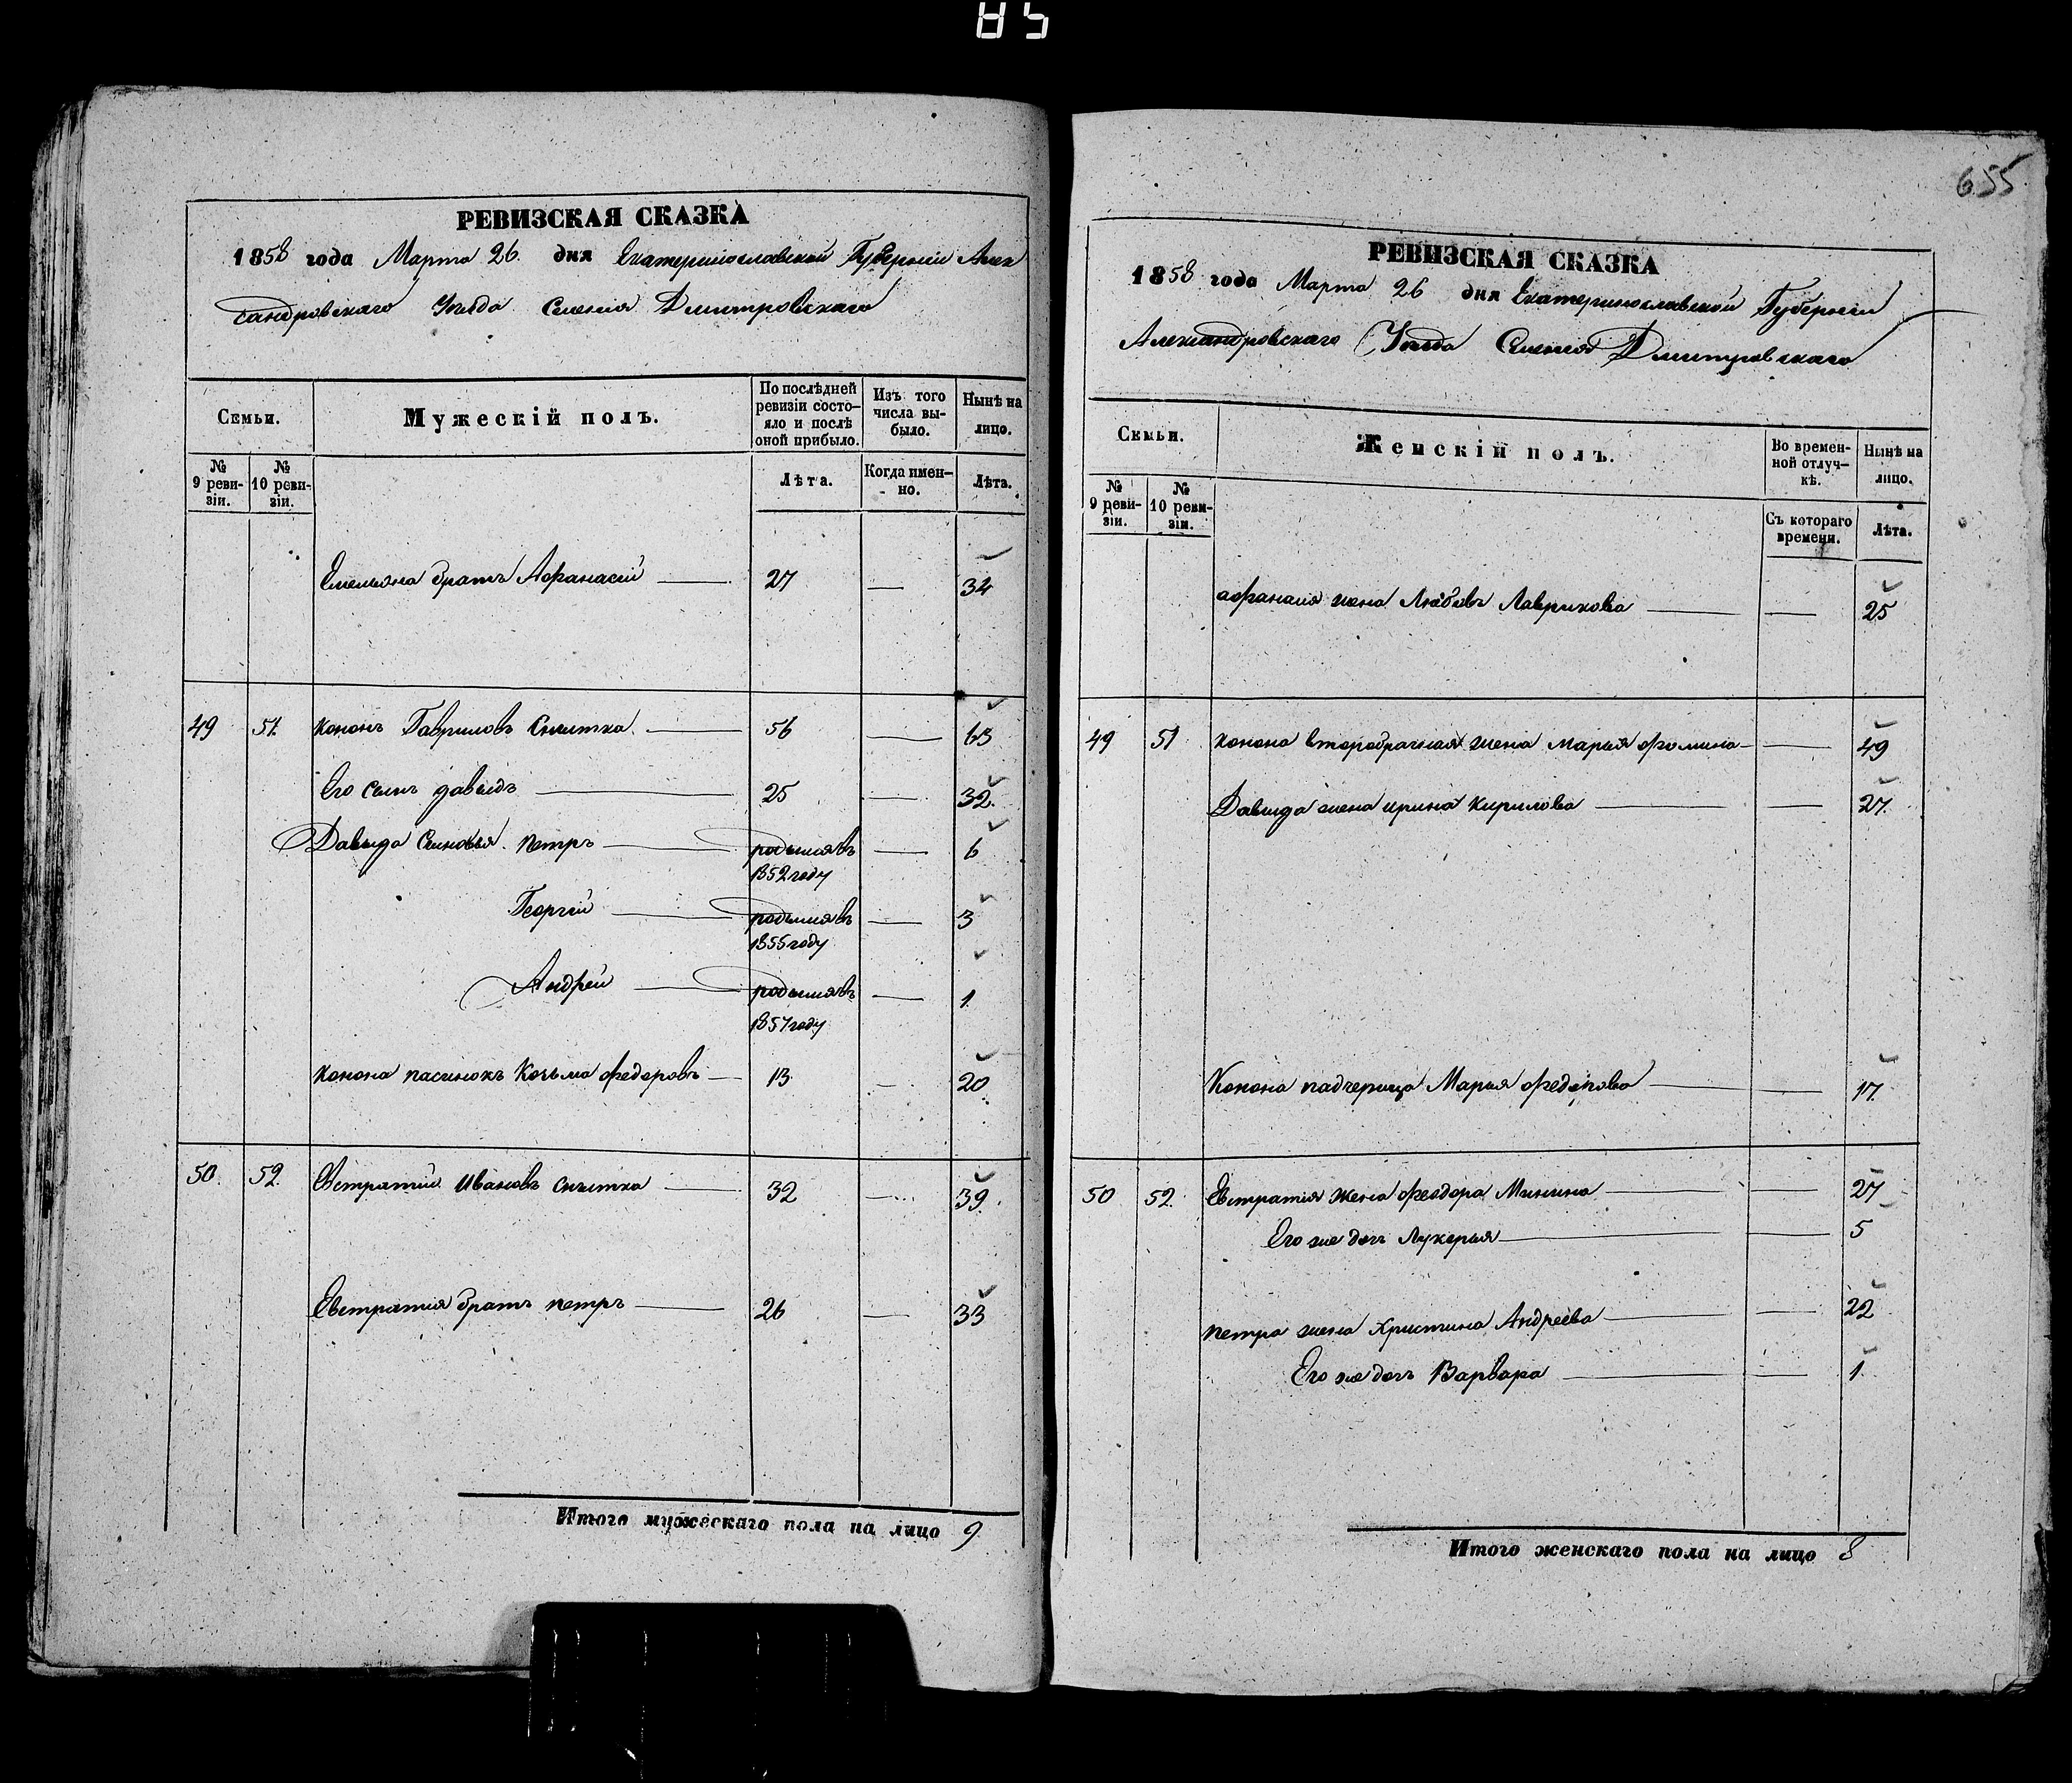 85
РЕВИЗСКАЯ СКАЗКА
1858 года Марта 26. дня Екатеринославской Губерніи Алек
сандровскаго Уѣзда Селенія Дмитровскаго
Семьи.
Мужескій полъ.
По послѣдней ревизіи состо-яло и послѣ оной прибыло.
Изъ того числа вы-было.
Нынѣ на лицо.
№ 9 реви-зіи.
№ 10 реви-зіи.
Лѣта.
Когда имен-но.
Лѣта.
Емельяна братъ Афанасій 27 — 34
49 51. Кононъ Гавриловъ Снытка. 56 — 63
Его сынъ давыдъ 25 — 32.
Давыда Сыновья. петръ родился въ — 6
1852 году
Георгій родился въ — 3
1855 году
Андрей родился въ — 1.
1857 году
Конона пасинокъ Козьма федоровъ 13. — 20
50. 52. Евстратій Ивановъ снытка 32 — 39.
Евстратія братъ петръ 26 — 33
Итого мужескаго пола на лицо 9.
655
РЕВИЗСКАЯ СКАЗКА
1858 года Марта 26 дня Екатеринославской Губерніи
Александровскаго Уѣзда Селенія Дмитровскаго
Семьи.
Женскій полъ.
Во времен-ной отлуч-кѣ.
Нынѣ на лицо.
№ 9 реви-зіи.
№ 10 реви-зіи.
Съ котораго времени.
Лѣта.
афанасія жена Любовь Лаврикова — 25
49 51 Конона второбрачная жена Марья фомина — 49
Давыда жена ирина Кирилова — 27.
Конона падчерица Марья федорова — 17.
50 52. Евстратія жена феодора Минина — 27
Его же дочь Лукерья — 5
петра жена Христина Андреева — 22
Его же дочь Варвара — 1.
Итого женскаго пола на лицо 8